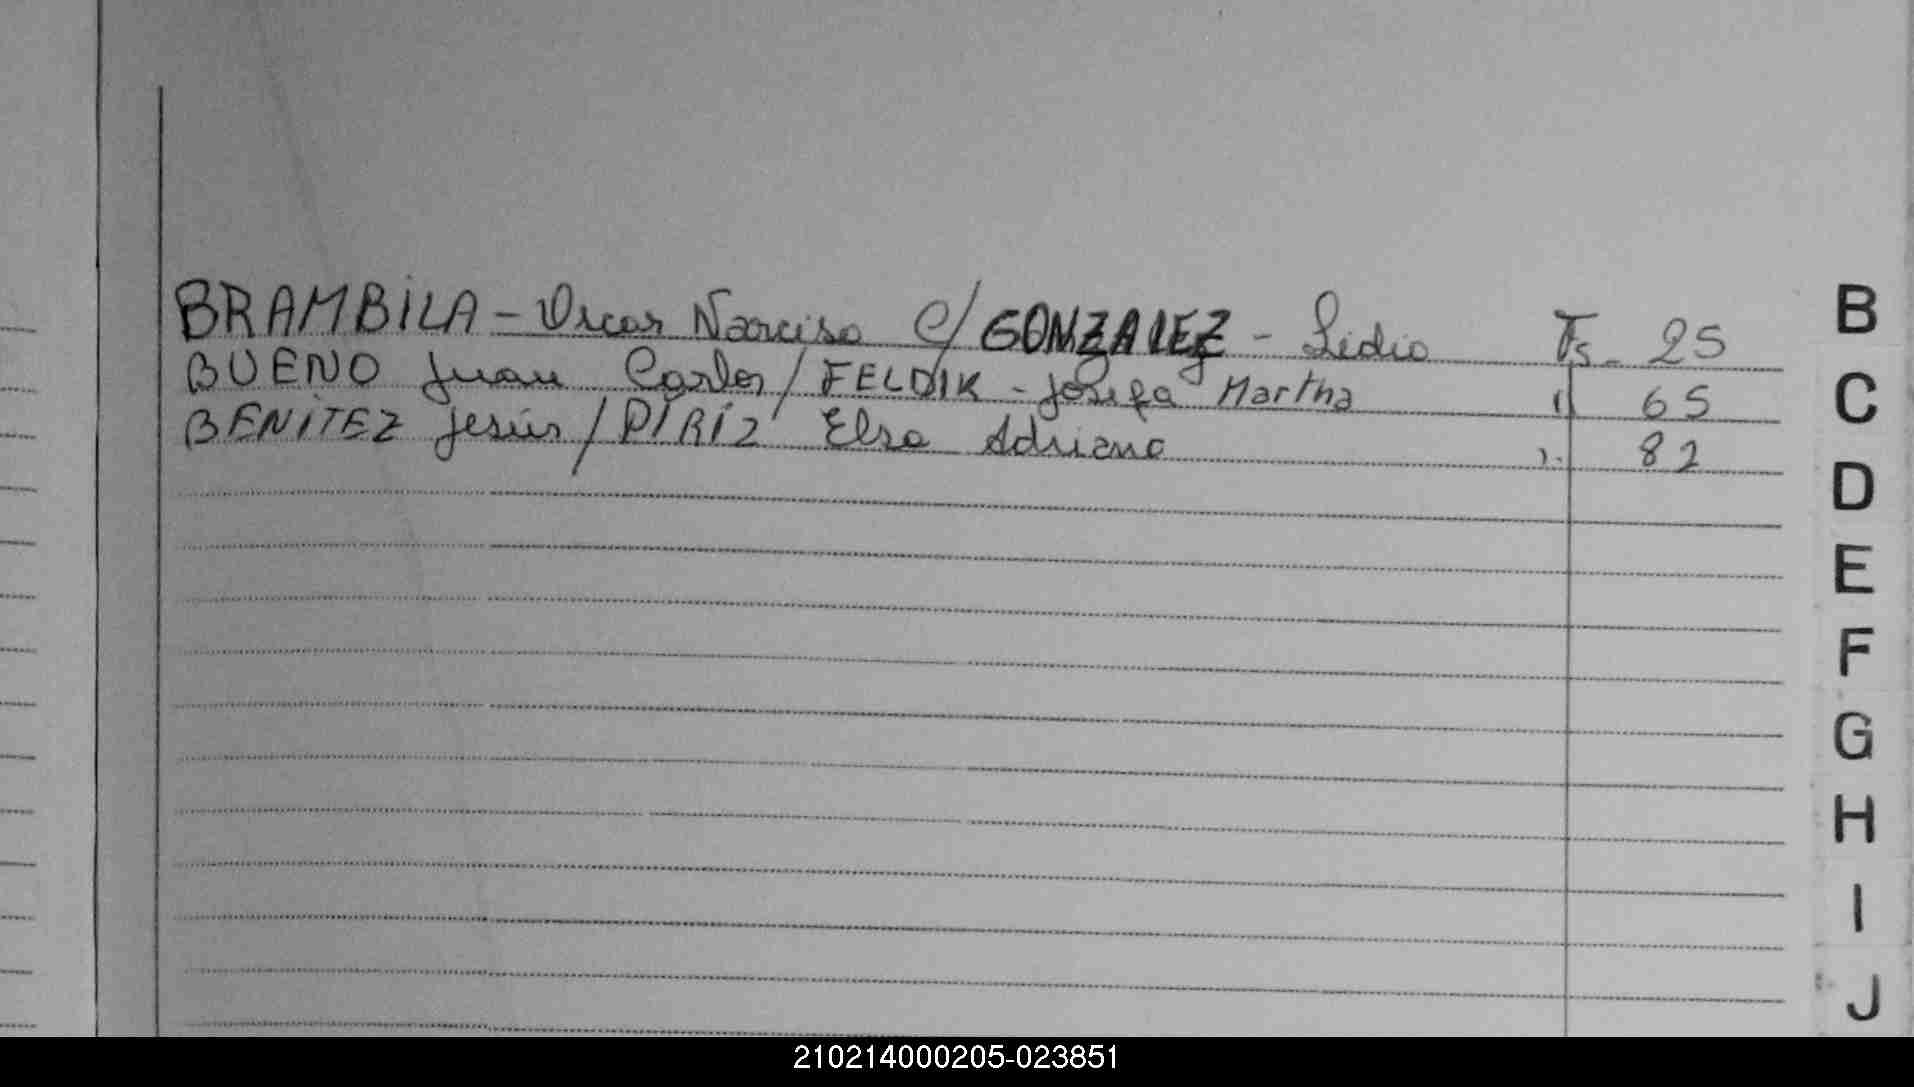 BRAMBILA - Oscar Narciso C/ GONZALEZ - Lidia Fs - 25
BUENO Juan Carlos / FELDIK - Josefa Martha " 65
BENITEZ Jesús / DIRIZ Elsa Adriana " 82
B
C
D
E
F
G
H
I
J
210214000205-023851